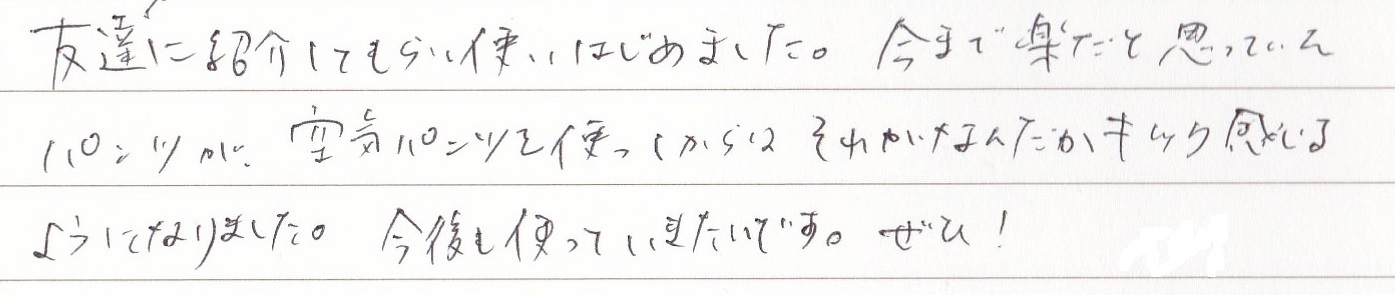 友達に紹介してもらい使いはじめました。今まで楽だと思っていた
パンツが、空気パンツを使ってからは それがなんだかキツク感じる
ようになりました。 今後も使っていきたいです。ぜひ！